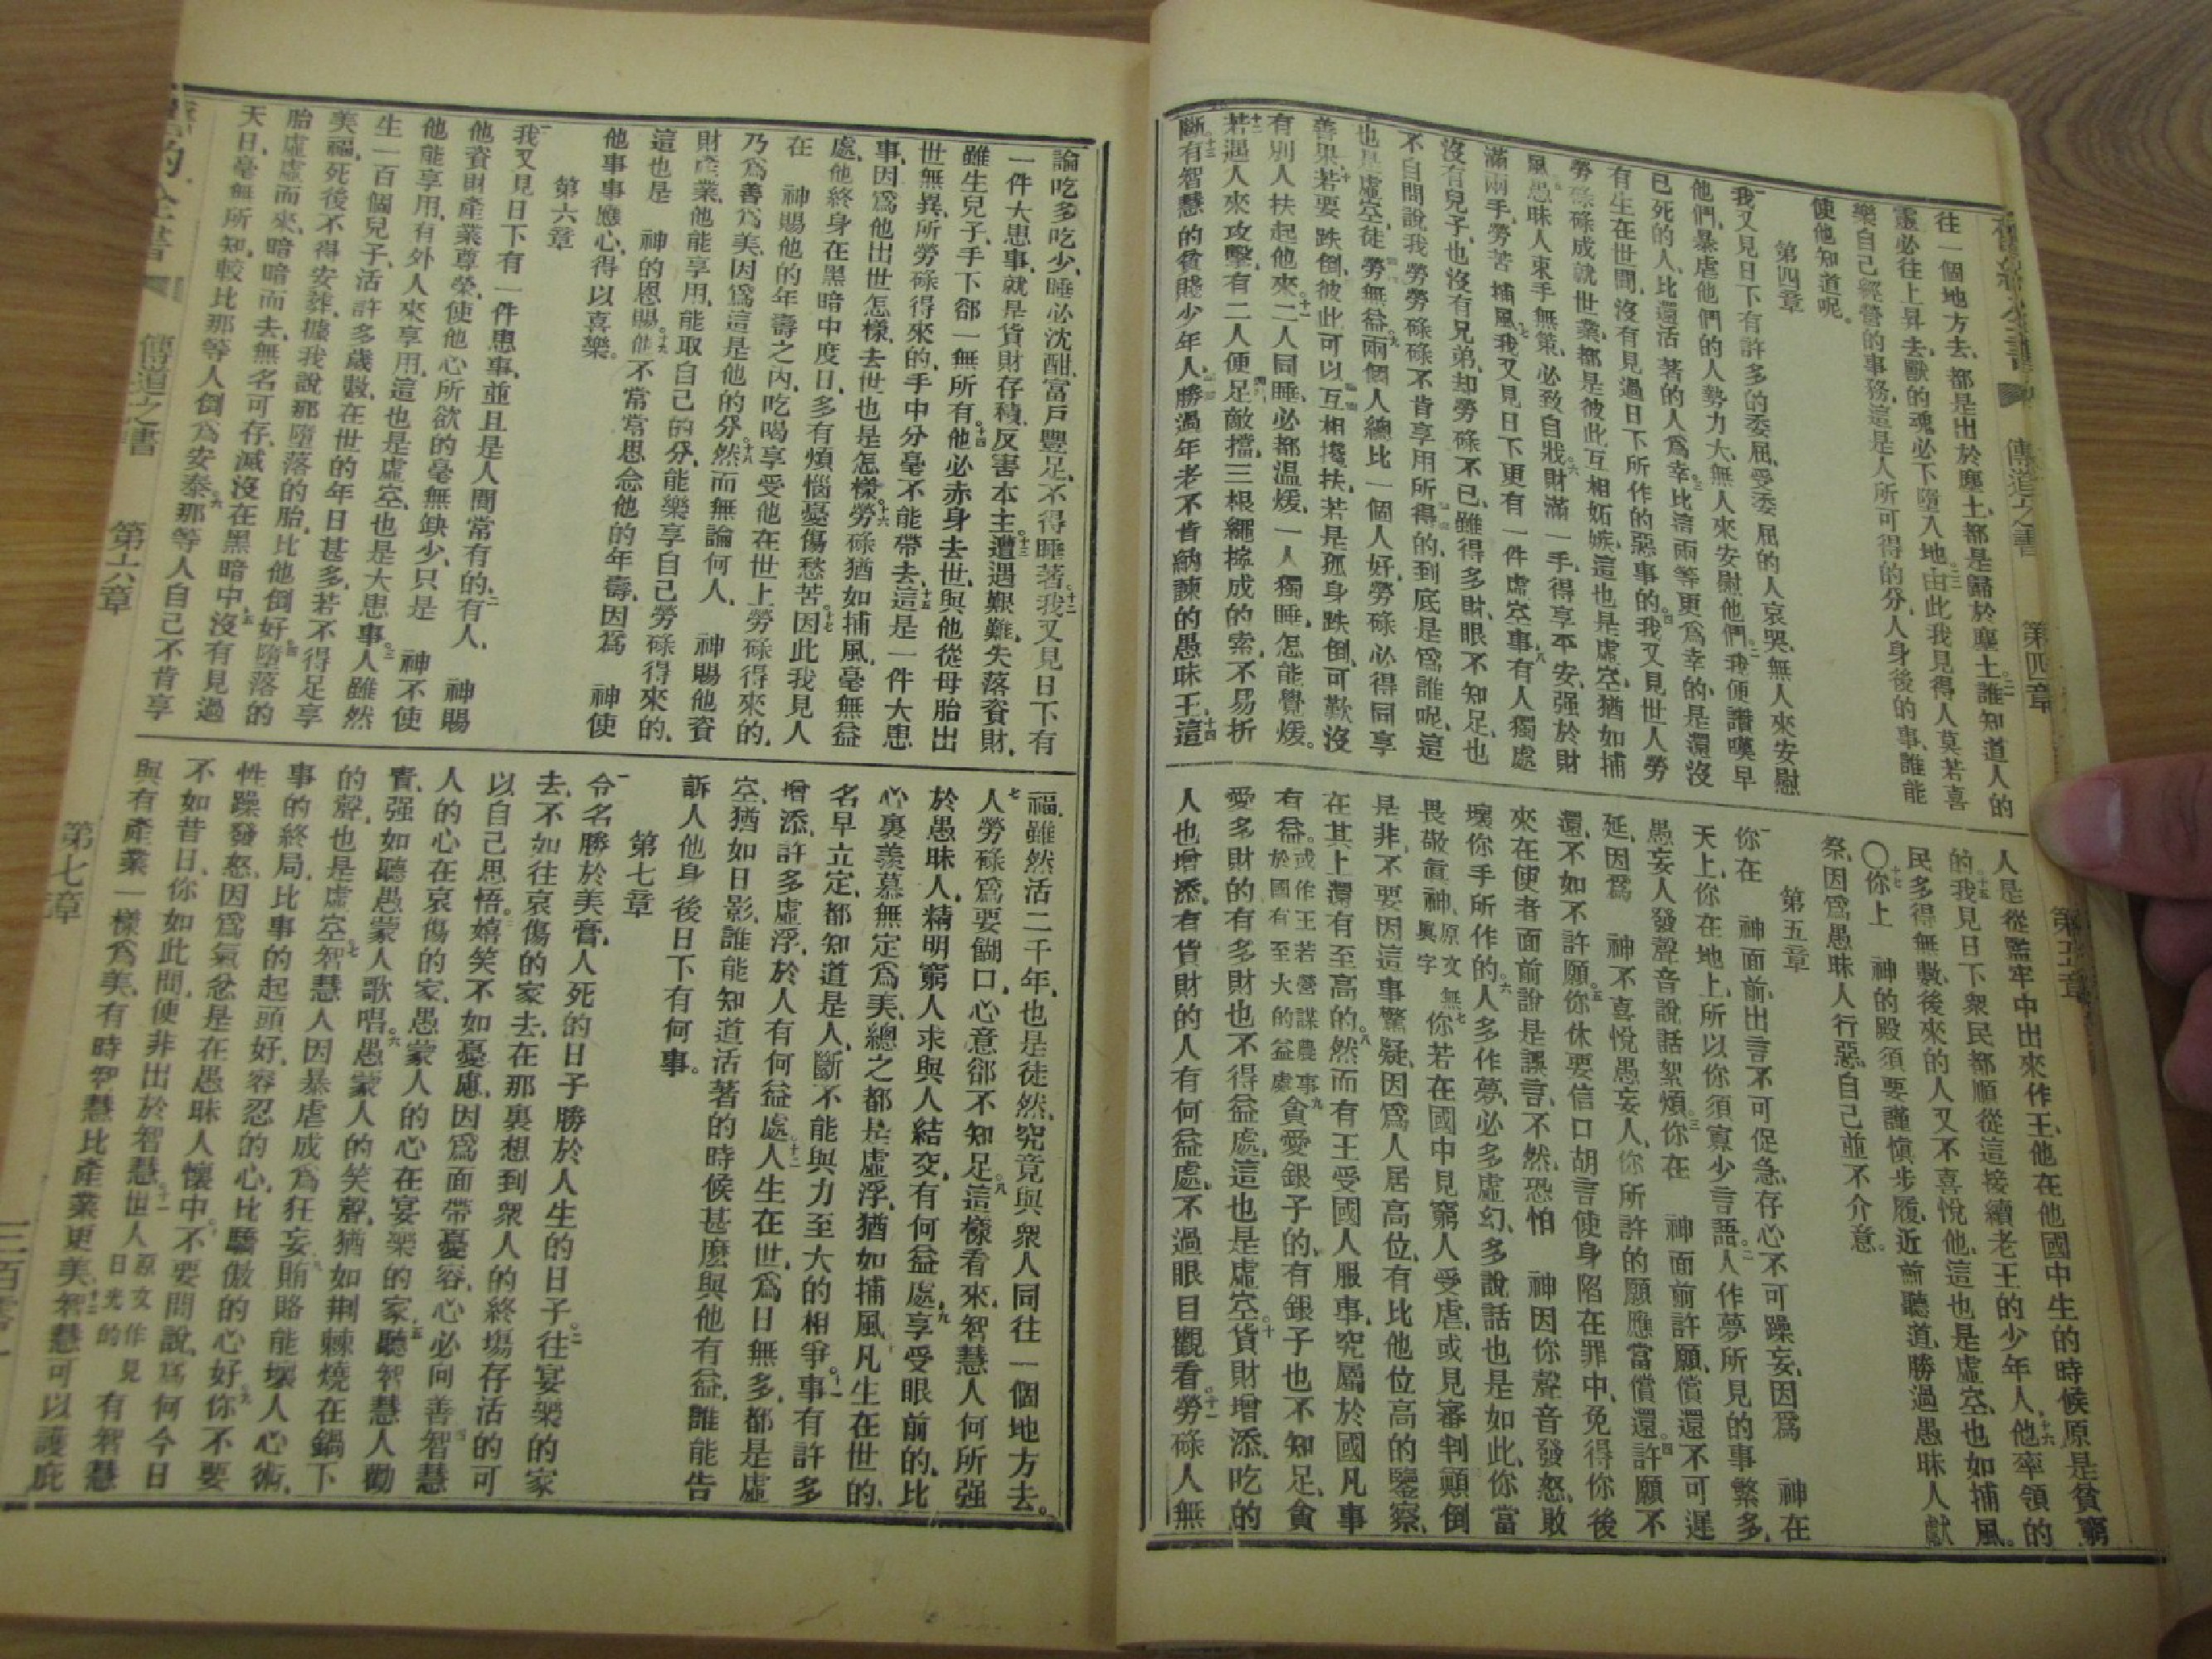 舊約全書 傳道之書 第四章 第五章
往一個地方去、都是出於塵土、都是歸於塵土。誰知道人的
靈必往上昇去、獸的魂必下墮入地。由此我見得人莫若喜
樂自己經營的事務、這是人所可得的分、人身後的事、誰能
使他知道呢。
第四章
我又見日下有許多的委屈、受委屈的人哀哭、無人來安慰
他們、暴虐他們的人勢力大、無人來安慰他們。我便讚嘆早
已死的人、比還活著的人爲幸。比這兩等更爲幸的、是還沒
有生在世間、沒有見過日下所作的惡事的。我又見世人勞
勞碌碌成就世業、都是彼此互相妬嫉、這也是虛空、猶如捕
風。愚昧人束手無策、必致自戕。財滿一手、得享平安、强於財
滿兩手、勞苦捕風。我又見日下更有一件虛空事、有人獨處
沒有兒子、也沒有兄弟、却勞碌不已、雖得多財、眼不知足、也
不自問說、我勞勞碌碌不肯享用所得的、到底是爲誰呢、這
也是虛空、徒勞無益。兩個人總比一個人好、勞碌必得同享
善果。若要跌倒、彼此可以互相攙扶、若是孤身跌倒、可歎沒
有別人扶起他來。二人同睡、必都温煖、一人獨睡、怎能覺煖。
若遇人來攻擊、有二人便足敵擋、三根繩擰成的索、不易折
斷。有智慧的貧賤少年人、勝過年老不肯納諫的愚昧王、這
人是從監牢中出來作王、他在他國中生的時候原是貧窮
的。我見日下衆民都順從這接續老王的少年人。他率領的
民多得無數、後來的人又不喜悅他、這也是虛空、也如捕風。
〇你上 神的殿須要謹愼步履、近前聽道、勝過愚昧人獻
祭、因爲愚昧人行惡、自己並不介意。
第五章
你在 神面前出言不可促急、存心不可躁妄、因爲 神在
天上、你在地上、所以你須寡少言語。人作夢所見的事繁多、
愚妄人發聲音說話絮煩。你在 神面前許願、償還不可遲
延、因爲 神不喜悅愚妄人、你所許的願應當償還。許願不
還、不如不許願。你休要信口胡言使身陷在罪中、免得你後
來在使者面前說是誤言、不然、恐怕 神因你聲音發怒、敗
壞你手所作的。人多作夢、必多虛幻、多說話也是如此、你當
畏敬眞神、原文無眞字你若在國中見窮人受虐、或見審判顚倒
是非、不要因這事驚疑、因爲人居高位、有比他位高的鑒察、
在其上還有至高的。然而有王受國人服事、究屬於國凡事
有益。或作王若營謀農事於國有至大的益處貪愛銀子的、有銀子也不知足、貪
愛多財的、有多財也不得益處、這也是虛空。貨財增添、吃的
人也增添、有貨財的人有何益處、不過眼目觀看。勞碌人無
論吃多吃少、睡必沈酣、富戶豐足、不得睡著。我又見日下有
一件大患事、就是貨財存積、反害本主。遭遇艱難、失落資財、
雖生兒子、手下郤一無所有。他必赤身去世、與他從母胎出
世無異、所勞碌得來的、手中分毫不能帶去。這是一件大患
事、因爲他出世怎樣、去世也是怎樣。勞碌猶如捕風、毫無益
處、他終身在黑暗中度日、多有煩惱憂傷愁苦。因此我見人
在 神賜他的年壽之內、吃喝享受他在世上勞碌得來的、
乃爲善爲美、因爲這是他的分。然而無論何人、 神賜他資
財產業、他能享用、能取自己的分、能樂享自己勞碌得來的、
這也是 神的恩賜。他不常常思念他的年壽、因爲 神使
他事事應心、得以喜樂。
第六章
我又見日下有一件患事、並且是人間常有的。有人、 神賜
他資財產業尊榮、使他心所欲的毫無缺少、只是 神不使
他能享用、有外人來享用、這也是虛空、也是大患事。人雖然
生一百個兒子、活許多歲數、在世的年日甚多、若不得足享
美福、死後不得安葬、據我說那墮落的胎、比他倒好。墮落的
胎虛虛而來、暗暗而去、無名可存、滅沒在黑暗中。沒有見過
天日、毫無所知、較比那等人倒爲安泰。那等人自己不肯享
福、雖然活二千年、也是徒然、究竟與衆人同往一個地方去。
人勞碌爲要餬口、心意郤不知足。這樣看來、智慧人何所强
於愚昧人、精明窮人求與人結交、有何益處。享受眼前的、比
心裏羡慕無定爲美、總之都是虛浮、猶如捕風。凡生在世的、
名早立定、都知道是人、斷不能與力至大的相爭。事有許多
增添、許多虛浮、於人有何益處。人生在世、爲日無多、都是虛
空、猶如日影、誰能知道活著的時候甚麽與他有益、誰能告
訴人他身後日下有何事。
第七章
令名勝於美膏、人死的日子勝於人生的日子。往宴樂的家
去、不如往哀傷的家去、在那裏想到衆人的終塲、存活的可
以自己思悟。嬉笑不如憂慮、因爲面帶憂容、心必向善。智慧
人的心在哀傷的家、愚蒙人的心在宴樂的家。聽智慧人勸
責、强如聽愚蒙人歌唱。愚蒙人的笑聲、猶如荆棘燒在鍋下
的聲、也是虛空。智慧人因暴虐成爲狂妄、賄賂能壞人心術。
事的終局、比事的起頭好、容忍的心、比驕傲的心好。你不要
性躁發怒、因爲氣忿是在愚昧人懷中。不要問說、爲何今日
不如昔日、你如此問、便非出於智慧。世人原文作見日光的有智慧
與有產業一樣爲美、有時智慧比產業更美。智慧可以護庇
舊約全書 傳道之書 第六章 第七章 三百零